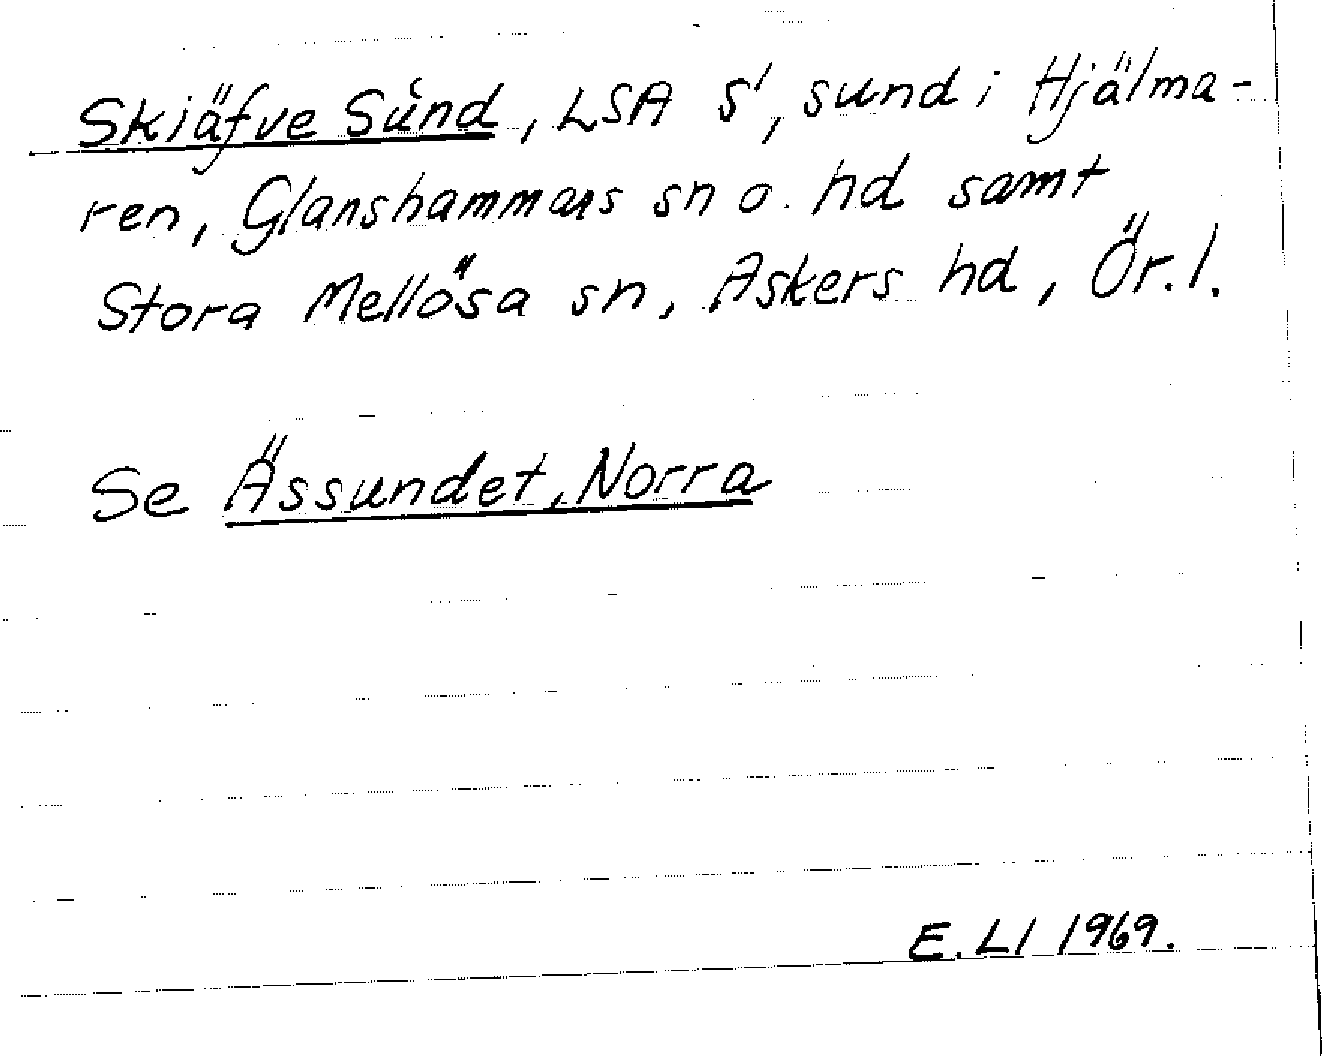 Skiäfve Sund, LSA S', sund i Hjälma-
ren, Glanshammars sn o. hd samt
Stora Mellösa sn, Askers hd, Ör. l.
Se Ässundet, Norra
E. LI 1969.